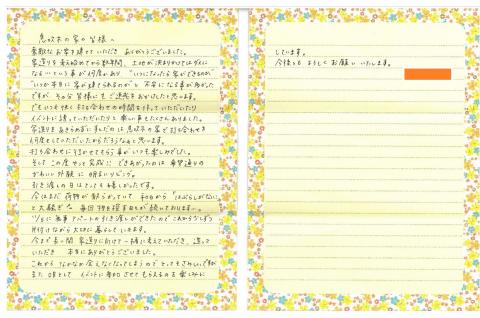 恵以木の家の皆様へ
素敵なお家を建てていただき ありがとうございました。
家造りを考え始めてから数年間、土地が決まりかけてはダメに
なるという事が何度かあり "いつになったら家ができるのか"
"いつか本当に家が建てられるのか" と 不安になる事が多かった
ですが、その分皆様にもご迷惑をおかけしたと思います。
でもいつも快く打ち合わせの時間を作っていただいたり
イベントに誘っていただいたりと楽しい事もたくさんありました。
家造りをあきらめずにすんだのは 恵以木の家で打ち合わせを
何度もしていただいたからだろうなぁと思います。
打ち合わせに行かせてもらう事がいつも楽しみでした。
そして この度やっと完成に できあがったのは 希望通りの
かわいい外観に 明るいリビング。
引き渡しの日はとっても嬉しかったです。
今はまだ 荷物が散らかっていて
と大騒ぎで 毎回物を探す日々が続いております…。
無事アパートの引き渡しができたので これから少しずつ
片付けながら大切に暮らしていきます。
今まで長い間 家造りに向けて一緒に考えていただき、造って
いただき 本当にありがとうございました。
これから なかなか会えなくなってしまうので とってもさみしいですが
また OBとして イベントに参加させてもらえるのを楽しみに
しています。
今後とも よろしくお願いいたします。